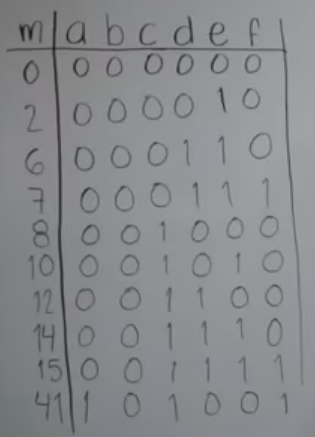 m a b c d e f
0 0 0 0 0 0 0
2 0 0 0 0 1 0
6 0 0 0 1 1 0
7 0 0 0 1 1 1
8 0 0 1 0 0 0
10 0 0 1 0 1 0
12 0 0 1 1 0 0
14 0 0 1 1 1 0
15 0 0 1 1 1 1
41 1 0 1 0 0 1